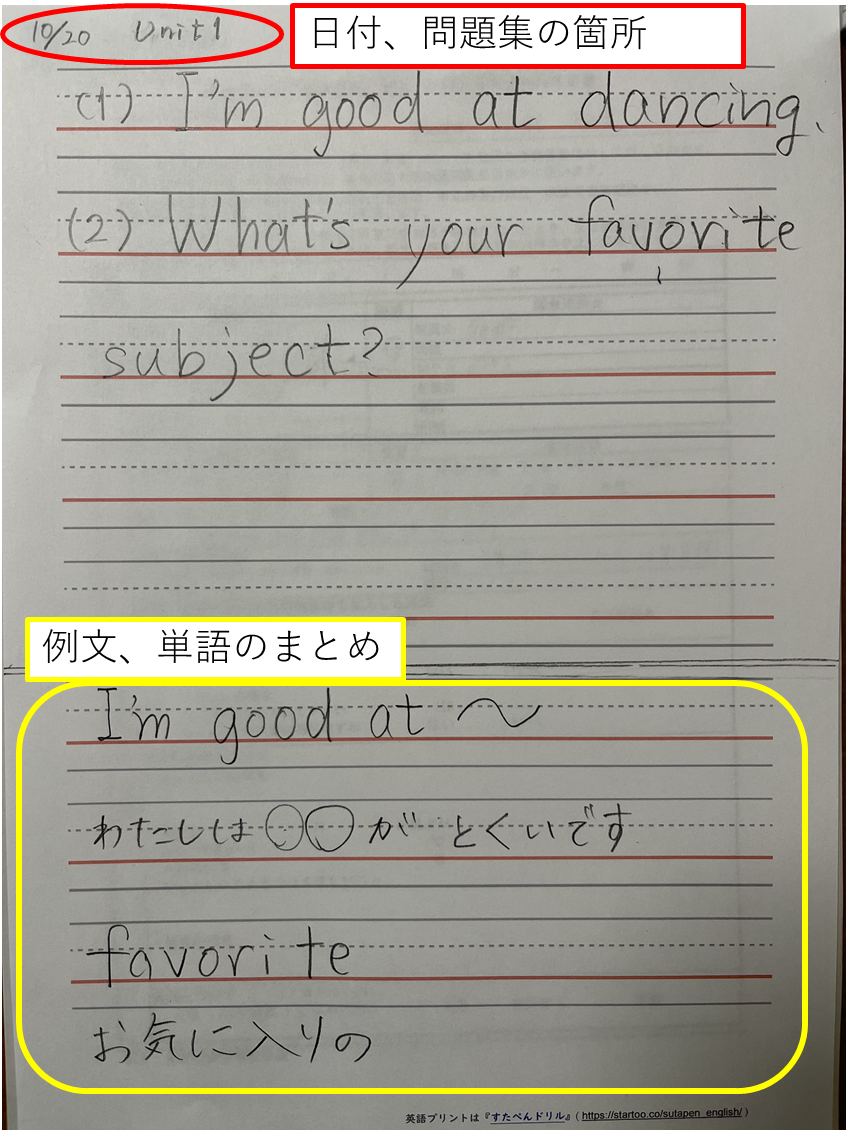 10/20 Unit 1
日付、問題集の箇所
(1) I'm good at dancing.
(2) What's your favorite
subject?
例文、単語のまとめ
I'm good at 〜
わたしは〇〇が とくいです
favorite
お気に入りの
英語プリントは『すたぺんドリル』( https://startoo.co/sutapen_english/ )